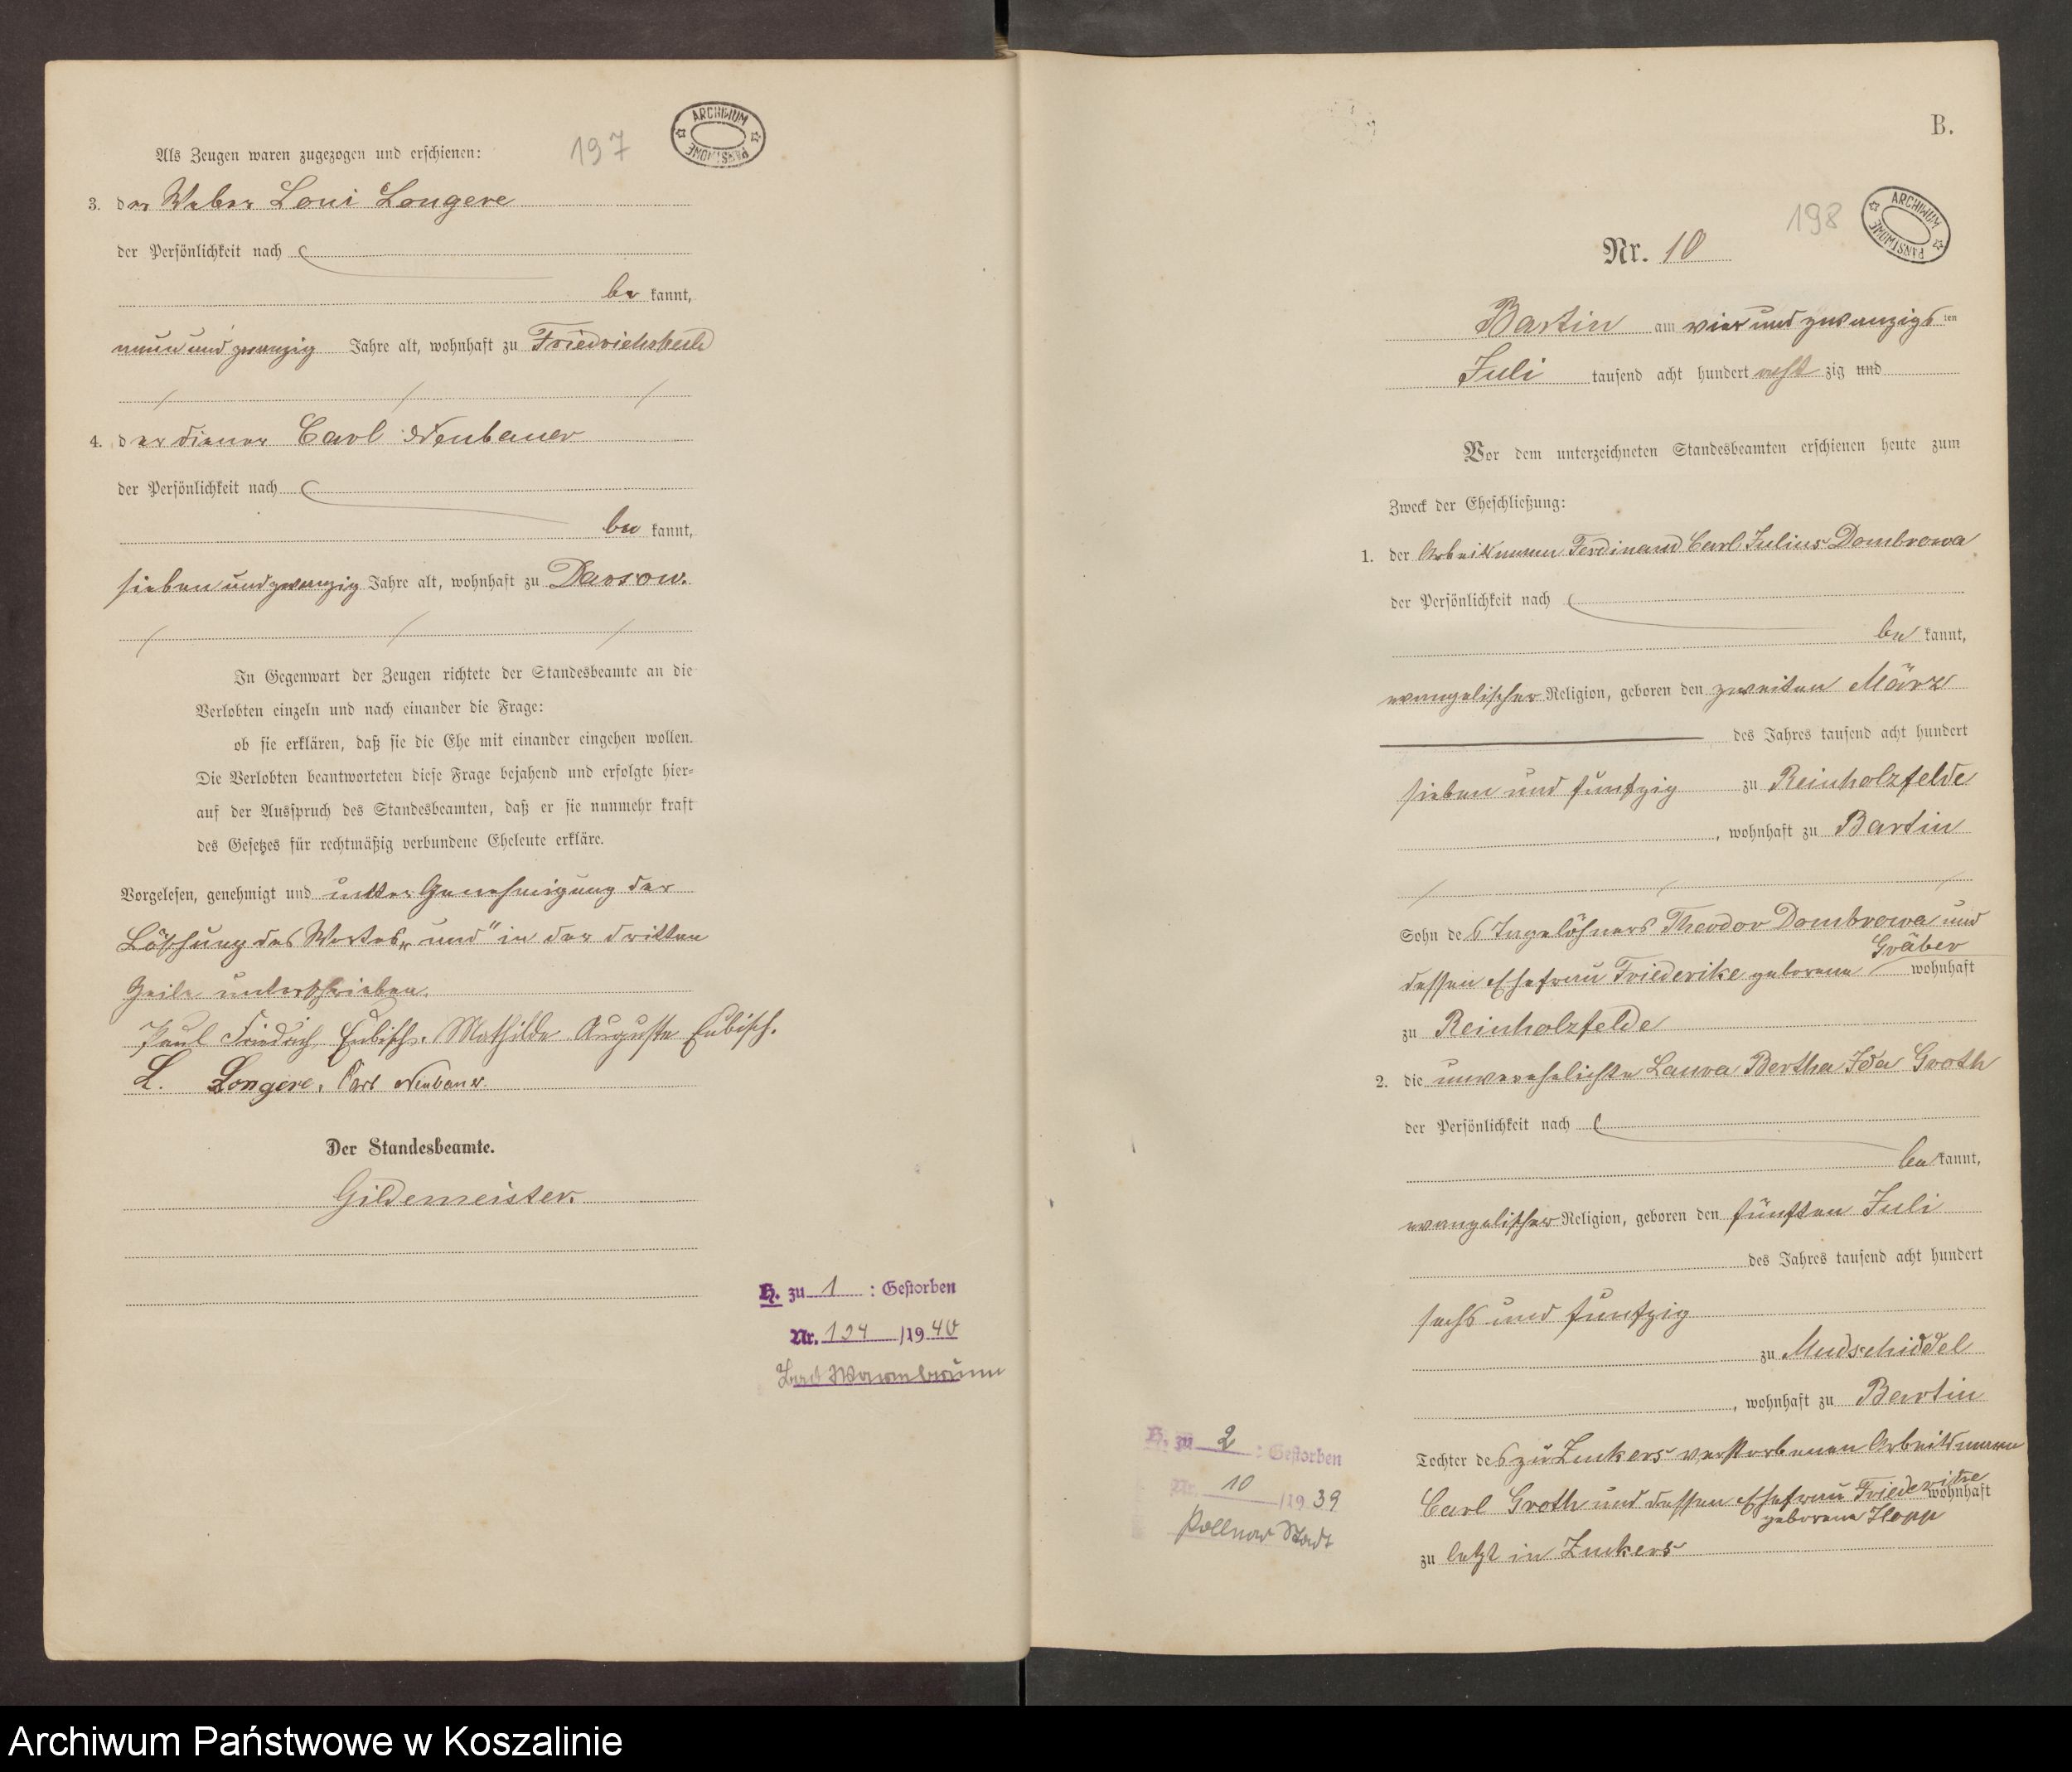 197
ARCHIWUM PAŃSTWOWE
Als Zeugen waren zugezogen und erschienen:
3. der Weber Loui Longere
der Persönlichkeit nach
be kannt,
neun und zwanzig Jahre alt, wohnhaft zu
4. der Diener Carl Neubauer
der Persönlichkeit nach
be kannt,
sieben und zwanzig Jahre alt, wohnhaft zu Darsow.
In Gegenwart der Zeugen richtete der Standesbeamte an die
Verlobten einzeln und nach einander die Frage:
ob sie erklären, daß sie die Ehe mit einander eingehen wollen.
Die Verlobten beantworteten diese Frage bejahend und erfolgte hier-
auf der Ausspruch des Standesbeamten, daß er sie nunmehr kraft
des Gesetzes für rechtmäßig verbundene Eheleute erkläre.
Vorgelesen, genehmigt und unter Genehmigung der
Löschung des Wortes „und" in der dritten
Zeile unterschrieben.
Paul Friedrich Eubisch. Mathilde Auguste Eubisch.
L. Longere. Carl Neubauer
Der Standesbeamte.
Gildemeister.
H. zu 1 : Gestorben
Nr. 124 /19 40
Bad Warmbrunn
B.
198
ARCHIWUM PAŃSTWOWE
Nr. 10
Bartin am vier und zwanzigs ten
Juli tausend acht hundert acht zig und
Vor dem unterzeichneten Standesbeamten erschienen heute zum
Zweck der Eheschließung:
1. der Arbeitsmann Ferdinand Carl Julius Dombrowa
der Persönlichkeit nach
be kannt,
evangelischer Religion, geboren den zweiten März
des Jahres tausend acht hundert
sieben und funfzig zu Reinholzfelde
, wohnhaft zu Bartin
Sohn de s Tagelöhners Theodor Dombrowa und
dessen Ehefrau Friederike geborene Gräber wohnhaft
zu Reinholzfelde
2. die unverehelichte Laura Bertha Ida Groth
der Persönlichkeit nach
be kannt,
evangelischer Religion, geboren den fünften Juli
des Jahres tausend acht hundert
sechs und funfzig
zu Mudschiddel
, wohnhaft zu Bartin
Tochter de s zu Zuckers verstorbenen Arbeitsmann
Carl Groth und dessen Ehefrau Friederike
geborene wohnhaft
zu letzt in Zuckers
H. zu 2 : Gestorben
Nr. 10 /19 39
Pollnow Stadt
Archiwum Państwowe w Koszalinie